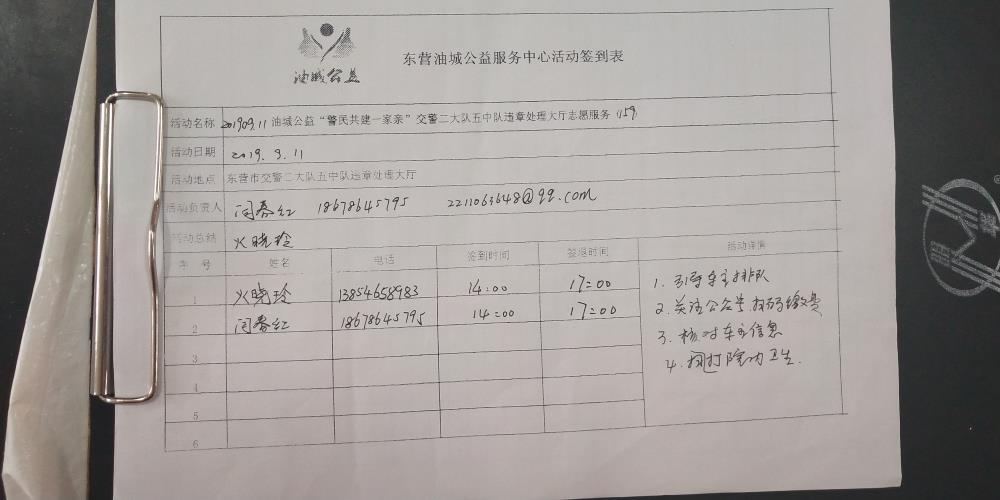 油城公益
东营油城公益服务中心活动签到表
活动名称 201909.11 油城公益“警民共建一家亲”交警二大队五中队违章处理大厅志愿服务 159
活动日期 2019.9.11
活动地点 东营市交警二大队五中队违章处理大厅
活动负责人 闫春红 18678645795 2211063648@qq.com
活动总结 火晓玲
序号 姓名 电话 签到时间 签退时间 活动详情
1 火晓玲 13854658983 14:00 17:00
2 闫春红 18678645795 14:00 17:00
3
4
5
6
1. 引导车主排队
2. 关注公众号,扫码缴费
3. 核对车主信息
4. 扫院内卫生.